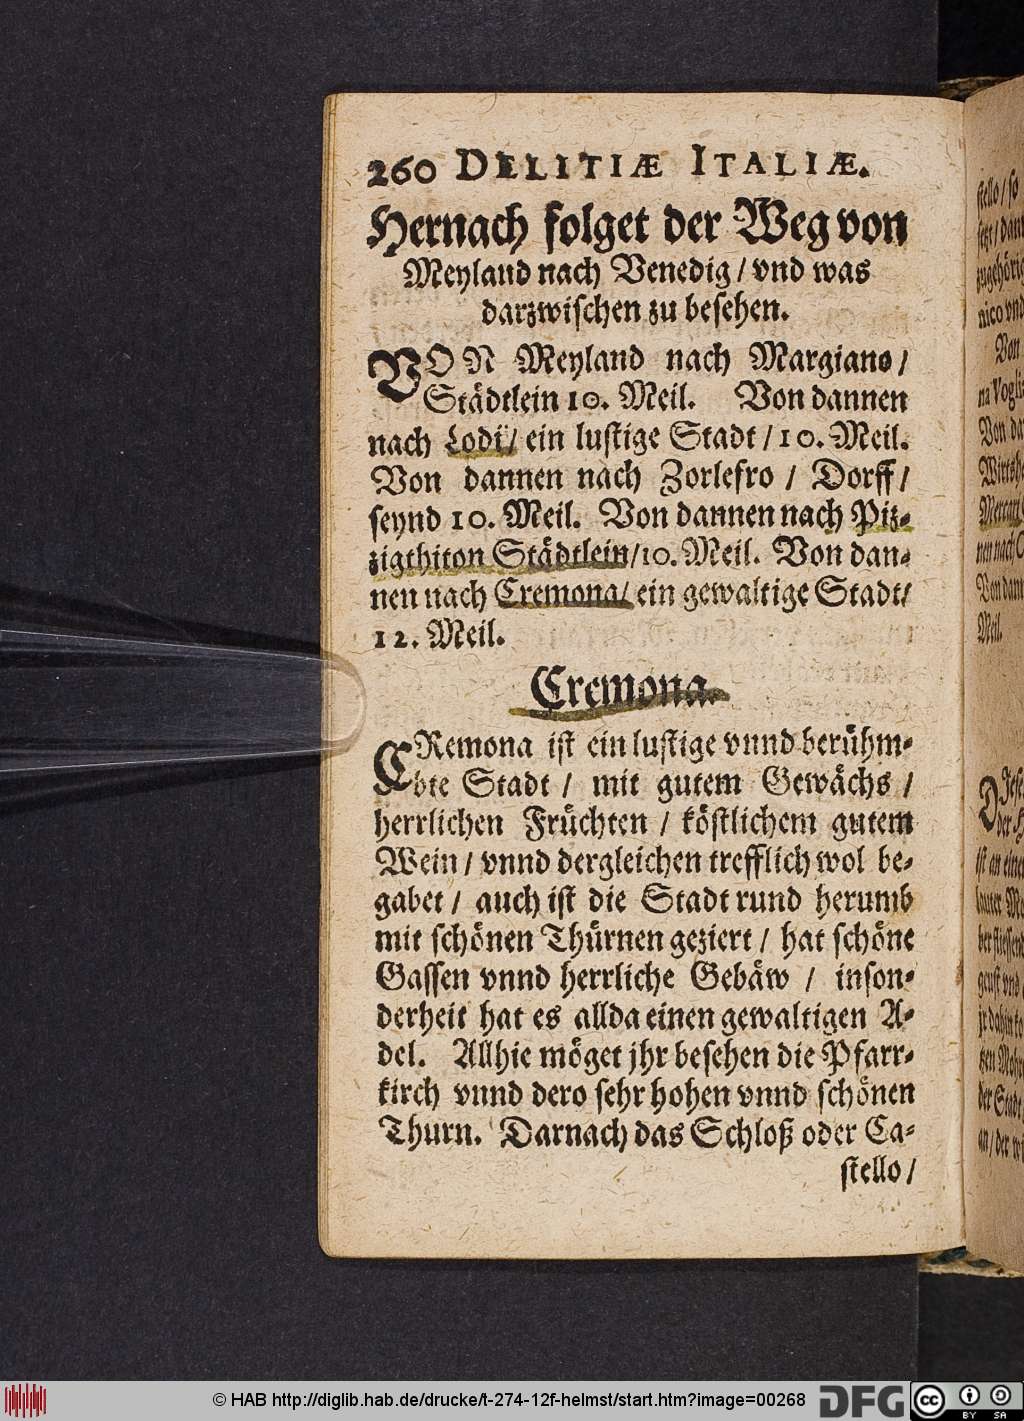 260 DELITIÆ ITALIÆ.
Hernach folget der Weg von
Meyland nach Venedig / vnd was
darzwischen zu besehen.
VON Meyland nach Margiano /
Städtlein 10. Meil. Von dannen
nach Lodi / ein lustige Stadt / 10. Meil.
Von dannen nach Zorlesro / Dorff /
seynd 10. Meil. Von dannen nach Piz-
zigthiton Städtlein / 10. Meil. Von dan-
nen nach Cremona / ein gewaltige Stadt /
12. Meil.
Cremona.
CRemona ist ein lustige vnnd berühm-
bte Stadt / mit gutem Gewächs /
herrlichen Früchten / köstlichem gutem
Wein / vnnd dergleichen trefflich wol be-
gabet / auch ist die Stadt rund herumb
mit schönen Thürnen geziert / hat schöne
Gassen vnnd herrliche Gebäw / inson-
derheit hat es allda einen gewaltigen A-
del. Allhie möget jhr besehen die Pfarr-
kirch vnnd dero sehr hohen vnnd schönen
Thurn. Darnach das Schloß oder Ca-
stello /
stello / so
nico vnd
Von
Von da
Meil.
der Stadt
© HAB http://diglib.hab.de/drucke/t-274-12f-helmst/start.htm?image=00268
DFG
cc BY SA